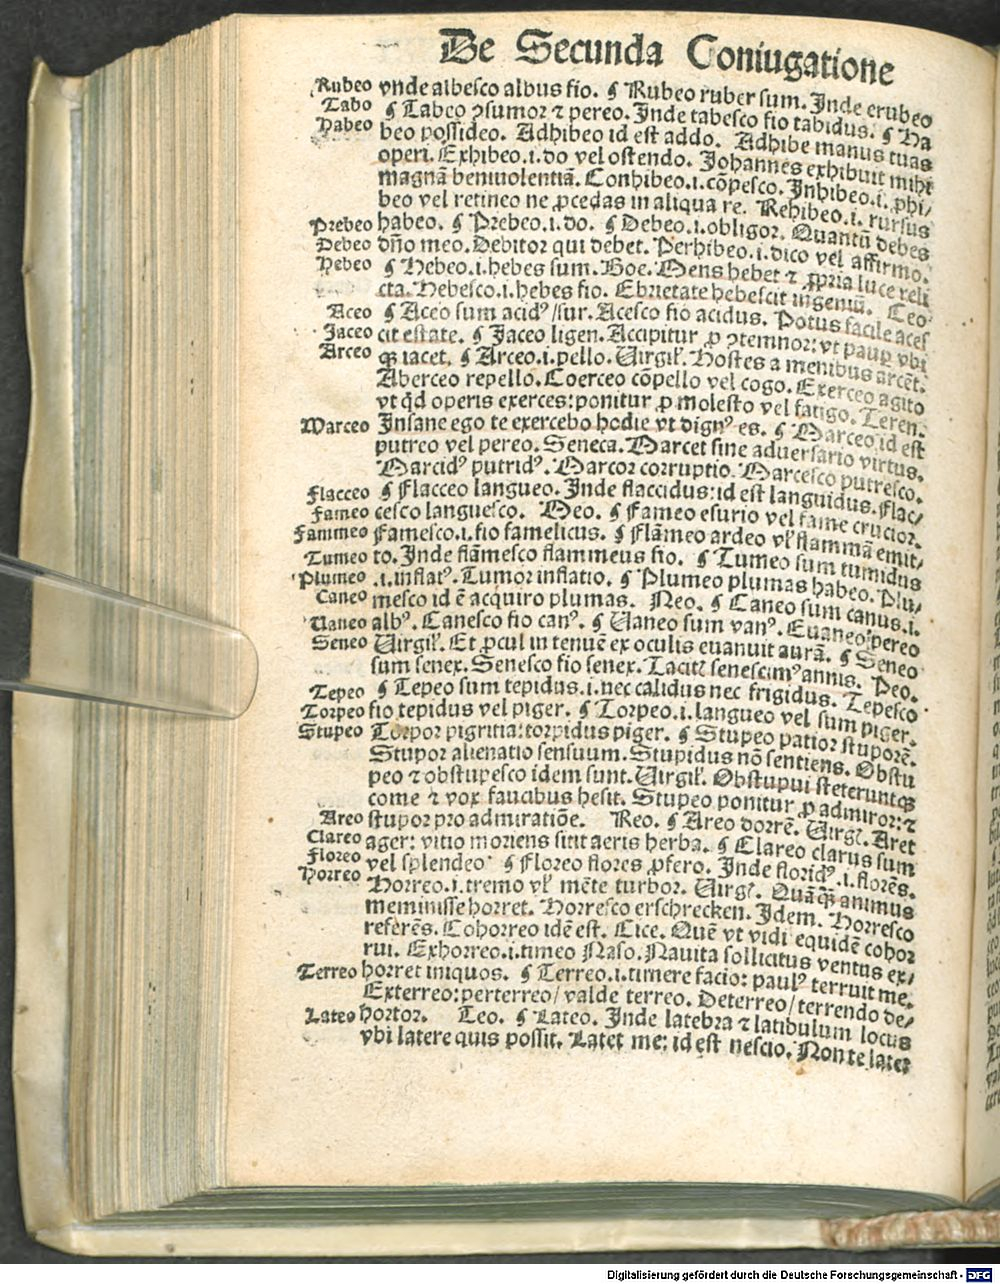 De Secunda Coniugatione
Rubeo vnde albesco albus fio. ¶ Rubeo ruber sum. Inde erubeo
Tabo ¶ Tabeo ↄsumor ⁊ pereo. Inde tabesco fio tabidus. ¶ Ha
Habeo beo possideo. Adhibeo id est addo. Adhibe manus tuas
operi. Exhibeo.i.do vel ostendo. Johannes exhibuit mihi
magnã beniuolentiã. Conhibeo.i.cõpesco. Inhibeo.i.ꝓhi/
beo vel retineo ne ꝓcedas in aliqua re. Rehibeo.i. rursus
Prebeo habeo. ¶ Prebeo.i.do. ¶ Debeo.i.obligor. Quantũ debes
Debeo dño meo. Debitor qui debet. Perhibeo.i.dico vel affirmo.
Hebeo ¶ Hebeo.i.hebes sum. Boe. Mens hebet ⁊ ꝓpria luce reli
cta. Hebesco.i.hebes fio. Ebrietate hebescit ingeniũ. Ceo
Aceo ¶ Aceo sum acidꝰ/sur. Acesco fio acidus. Potus facile aces
Jaceo cit estate. ¶ Jaceo ligen. Accipitur ꝓ ↄtemnor: vt paupꝑ vbi
Arceo qꝫ iacet. ¶ Arceo.i.pello. Virgiꝉ. Hostes a menibus arcẽt.
Aberceo repello. Coerceo cõpello vel cogo. Exerceo agito
vt qd̓ operis exerces: ponitur ꝓ molesto vel fatigo. Teren.
Marceo Insane ego te exercebo hodie vt dignꝰ es. ¶ Marceo id est
putreo vel pereo. Seneca. Marcet sine aduersario virtus.
Marcidꝰ putridꝰ. Marcor corruptio. Marcesco putresco.
Flacceo ¶ Flacceo langueo. Inde flaccidus: id est languidus. Flac/
Fameo cesco languesco. Meo. ¶ Fameo esurio vel fame crucior.
Fammeo Famesco.i.fio famelicus. ¶ Flãmeo ardeo vꝉ flammã emit/
Tumeo to. Inde flãmesco flammeus fio. ¶ Tumeo sum tumidus
Plumeo .i.inflatꝰ. Tumor inflatio. ¶ Plumeo plumas habeo. Plu/
Caneo mesco id ẽ acquiro plumas. Neo. ¶ Caneo sum canus.i.
Vaneo albꝰ. Canesco fio canꝰ. ¶ Vaneo sum vanꝰ. Euaneo: pereo
Seneo Virgiꝉ. Et ꝓcul in tenuẽ ex oculis euanuit aurã. ¶ Seneo
sum senex. Senesco fio senex. Tacitꝭ senescimꝰ annis. Peo.
Tepeo ¶ Tepeo sum tepidus.i.nec calidus nec frigidus. Tepesco
Torpeo fio tepidus vel piger. ¶ Torpeo.i.langueo vel sum piger.
Stupeo Torpor pigritia: torpidus piger. ¶ Stupeo patior stuporẽ.
Stupor alienatio sensuum. Stupidus nõ sentiens. Obstu
peo ⁊ obstupesco idem sunt. Virgiꝉ. Obstupui steteruntqꝫ
come ⁊ vox faucibus hesit. Stupeo ponitur ꝓ admiror: ⁊
Areo stupor pro admiratiõe. Reo. ¶ Areo dorrẽ. Virgꝉ. Aret
Clareo ager: vitio moriens sitit aeris herba. ¶ Clareo clarus sum
Floreo vel splendeo ¶ Floreo flores ꝓfero. Inde floridꝰ.i.florẽs.
Horreo Horreo.i.tremo vꝉ mẽte turbor. Virgꝉ. Quãqꝫ animus
meminisse horret. Horresco erschrecken. Idem. Horresco
referẽs. Cohorreo idẽ est. Cice. Quẽ vt vidi equidẽ cohor
rui. Exhorreo.i.timeo Naso. Nauita sollicitus ventus ex/
Terreo horret iniquos. ¶ Terreo.i.timere facio: paulꝰ terruit me.
Exterreo: perterreo/ valde terreo. Deterreo/ terrendo de/
Lateo hortor. Teo. ¶ Lateo. Inde latebra ⁊ latibulum locus
vbi latere quis possit. Latet me: id est nescio. Non te latet
Digitalisierung gefördert durch die Deutsche Forschungsgemeinschaft - DFG